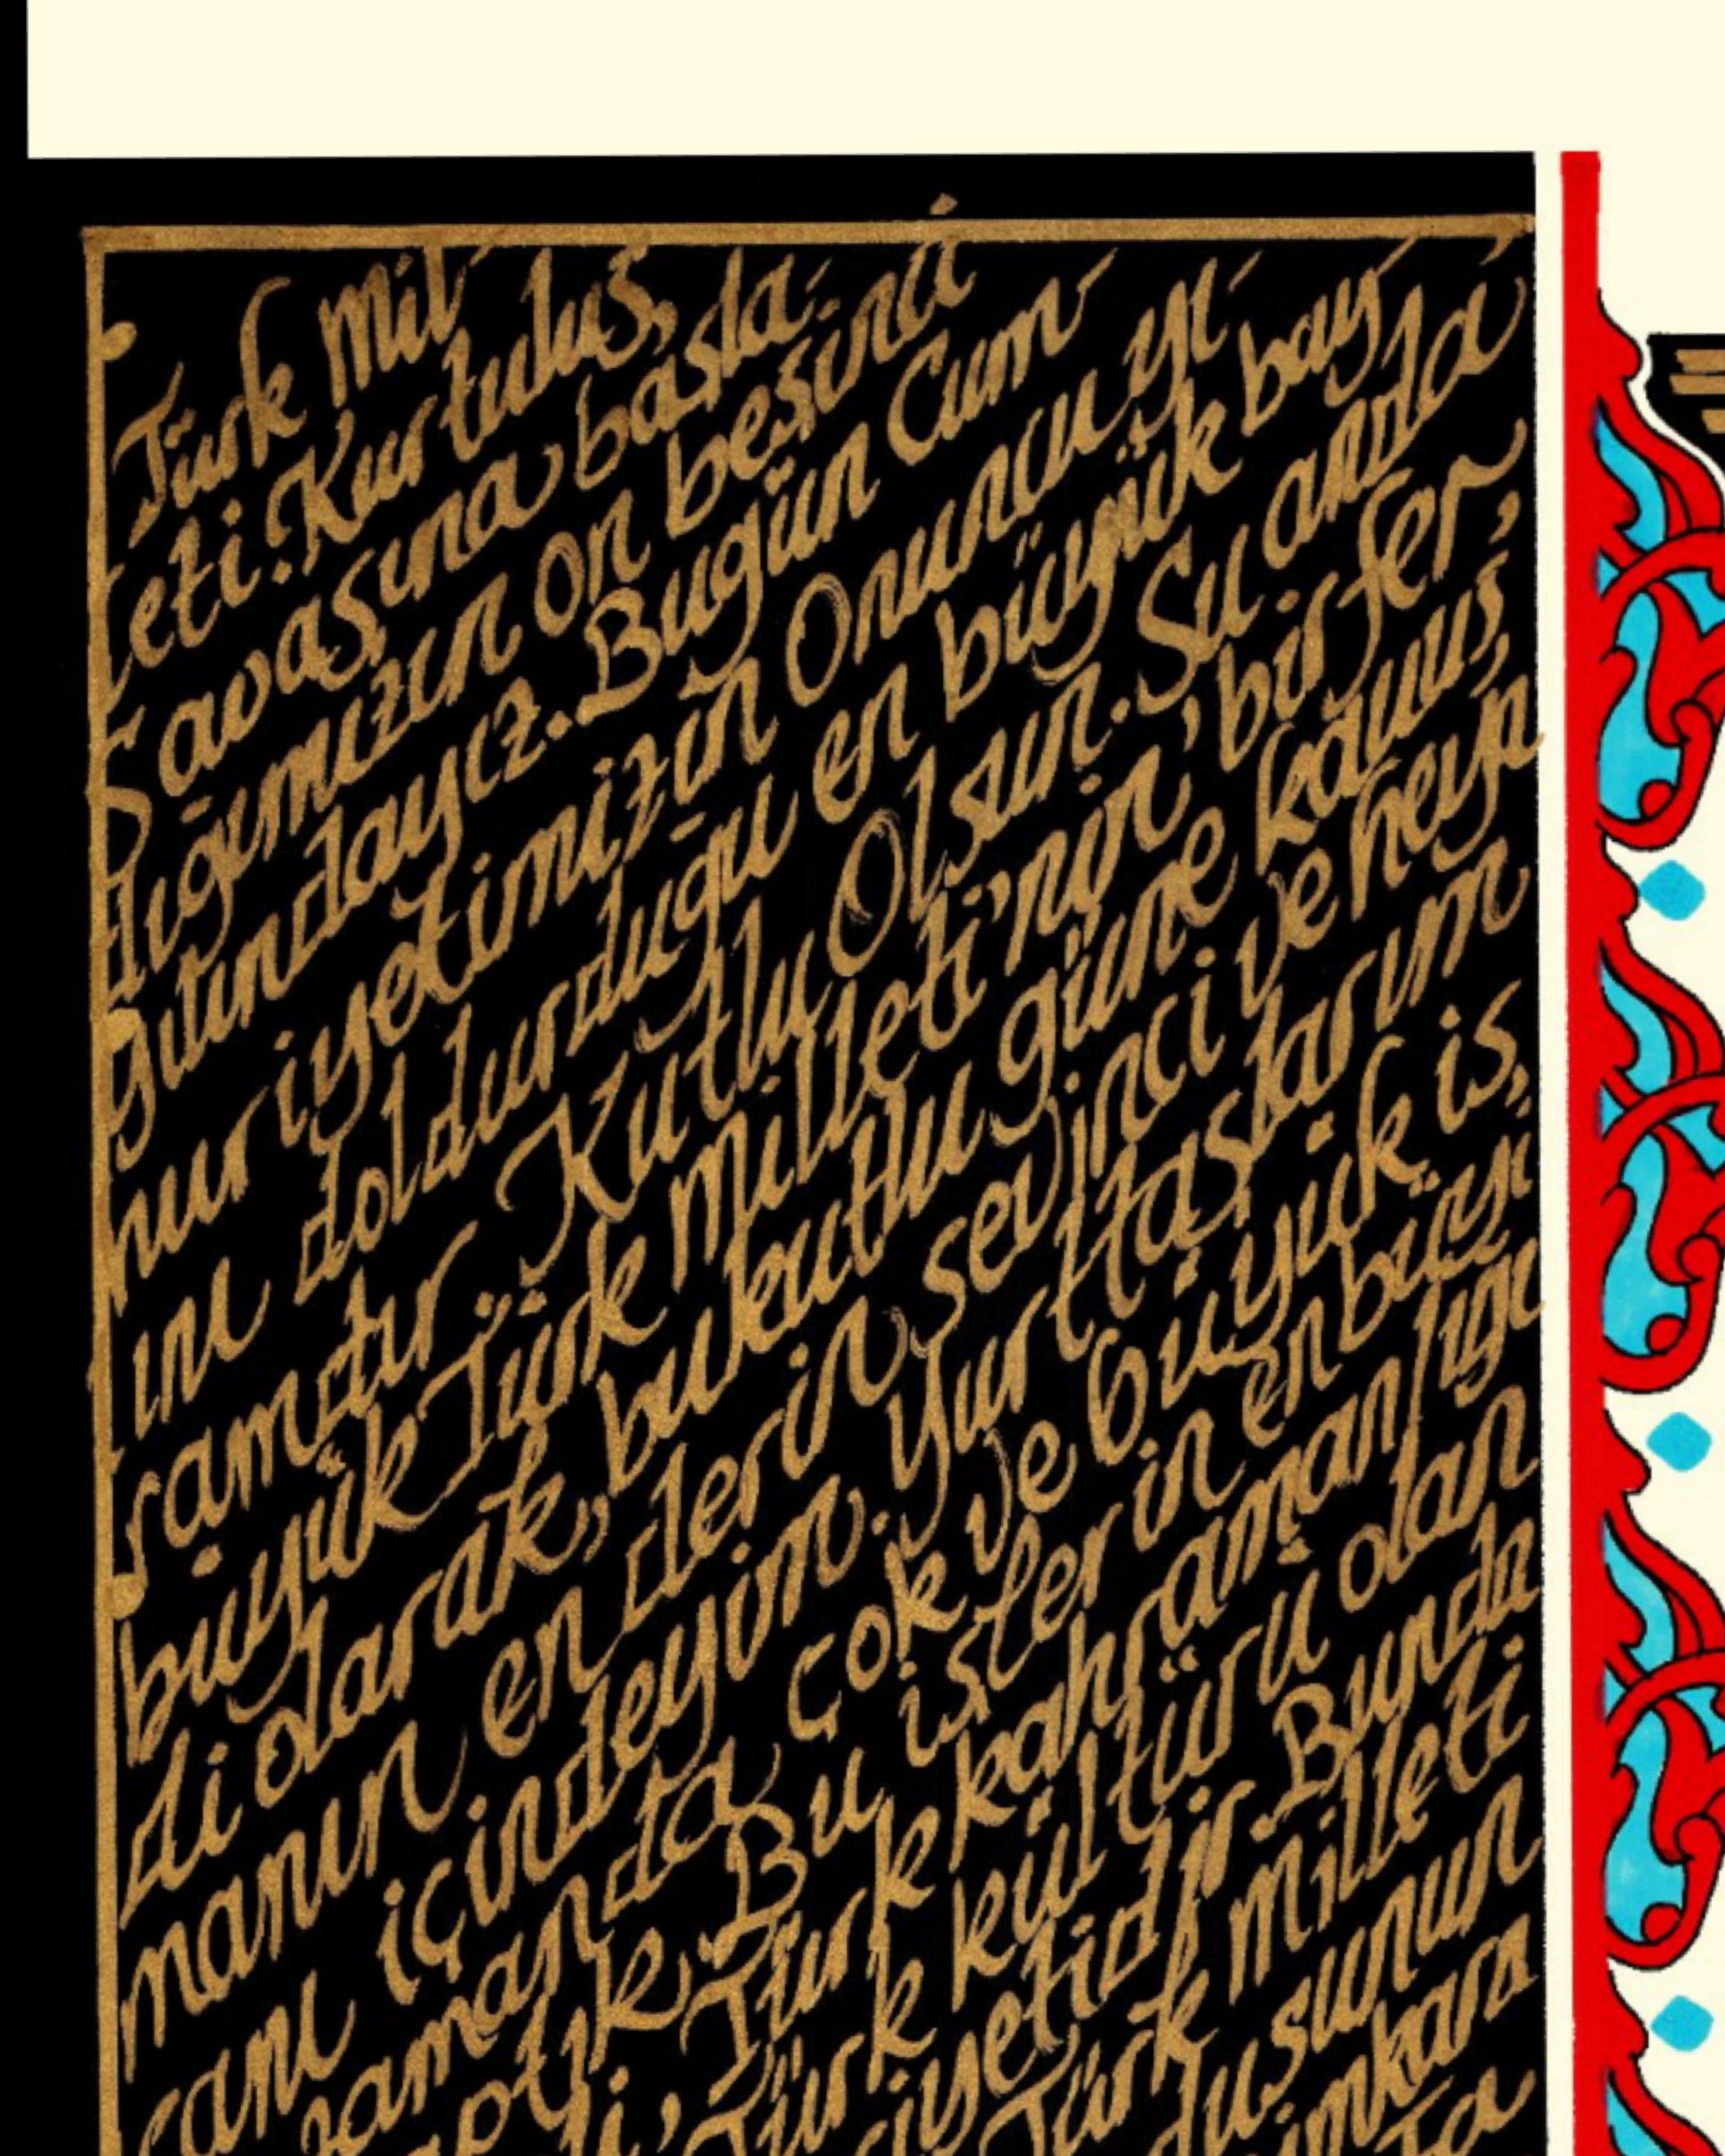 Türk mil-
leti. Kurtuluş
Savaşına başla-
dığımızın on beşinci
yılındayız. Bugün Cum-
huriyetimizin Onuncu yı-
lını doldurduğu en büyük bay-
ramdır. Kutlu Olsun. Şu anda
büyük Türk milleti'nin bir fer-
di olarak, bu kutlu güne kavuş-
manın en derin sevinci ve heya-
canı içindeyim. Yurttaşlarım
zamanda çok ve büyük iş-
Bu işlerin en büyü-
Türk kahramanlığı
Türk kültürü olan
riyetidir. Bunda
Türk milleti
dusunun